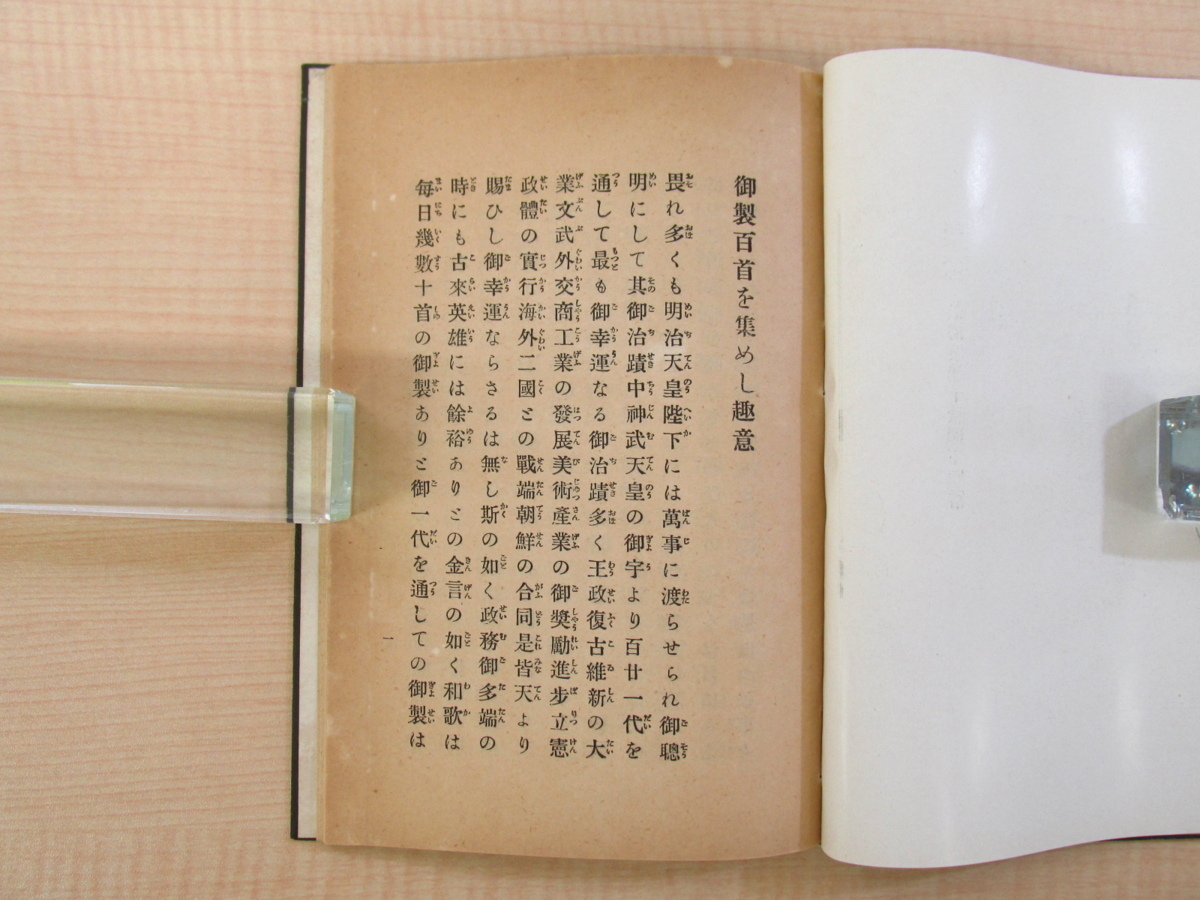 御製百首を集めし趣意
畏れ多くも明治天皇陛下には萬事に渡らせられ御聰
明にして其御治蹟中神武天皇の御宇より百廿一代を
通して最も御幸運なる御治蹟多く王政復古維新の大
業文武外交商工業の發展美術產業の御奬勵進步立憲
政體の實行海外二國との戰端朝鮮の合同是皆天より
賜ひし御幸運ならさるは無し斯の如く政務御多端の
時にも古來英雄には餘裕ありとの金言の如く和歌は
每日幾數十首の御製ありと御一代を通しての御製は
一